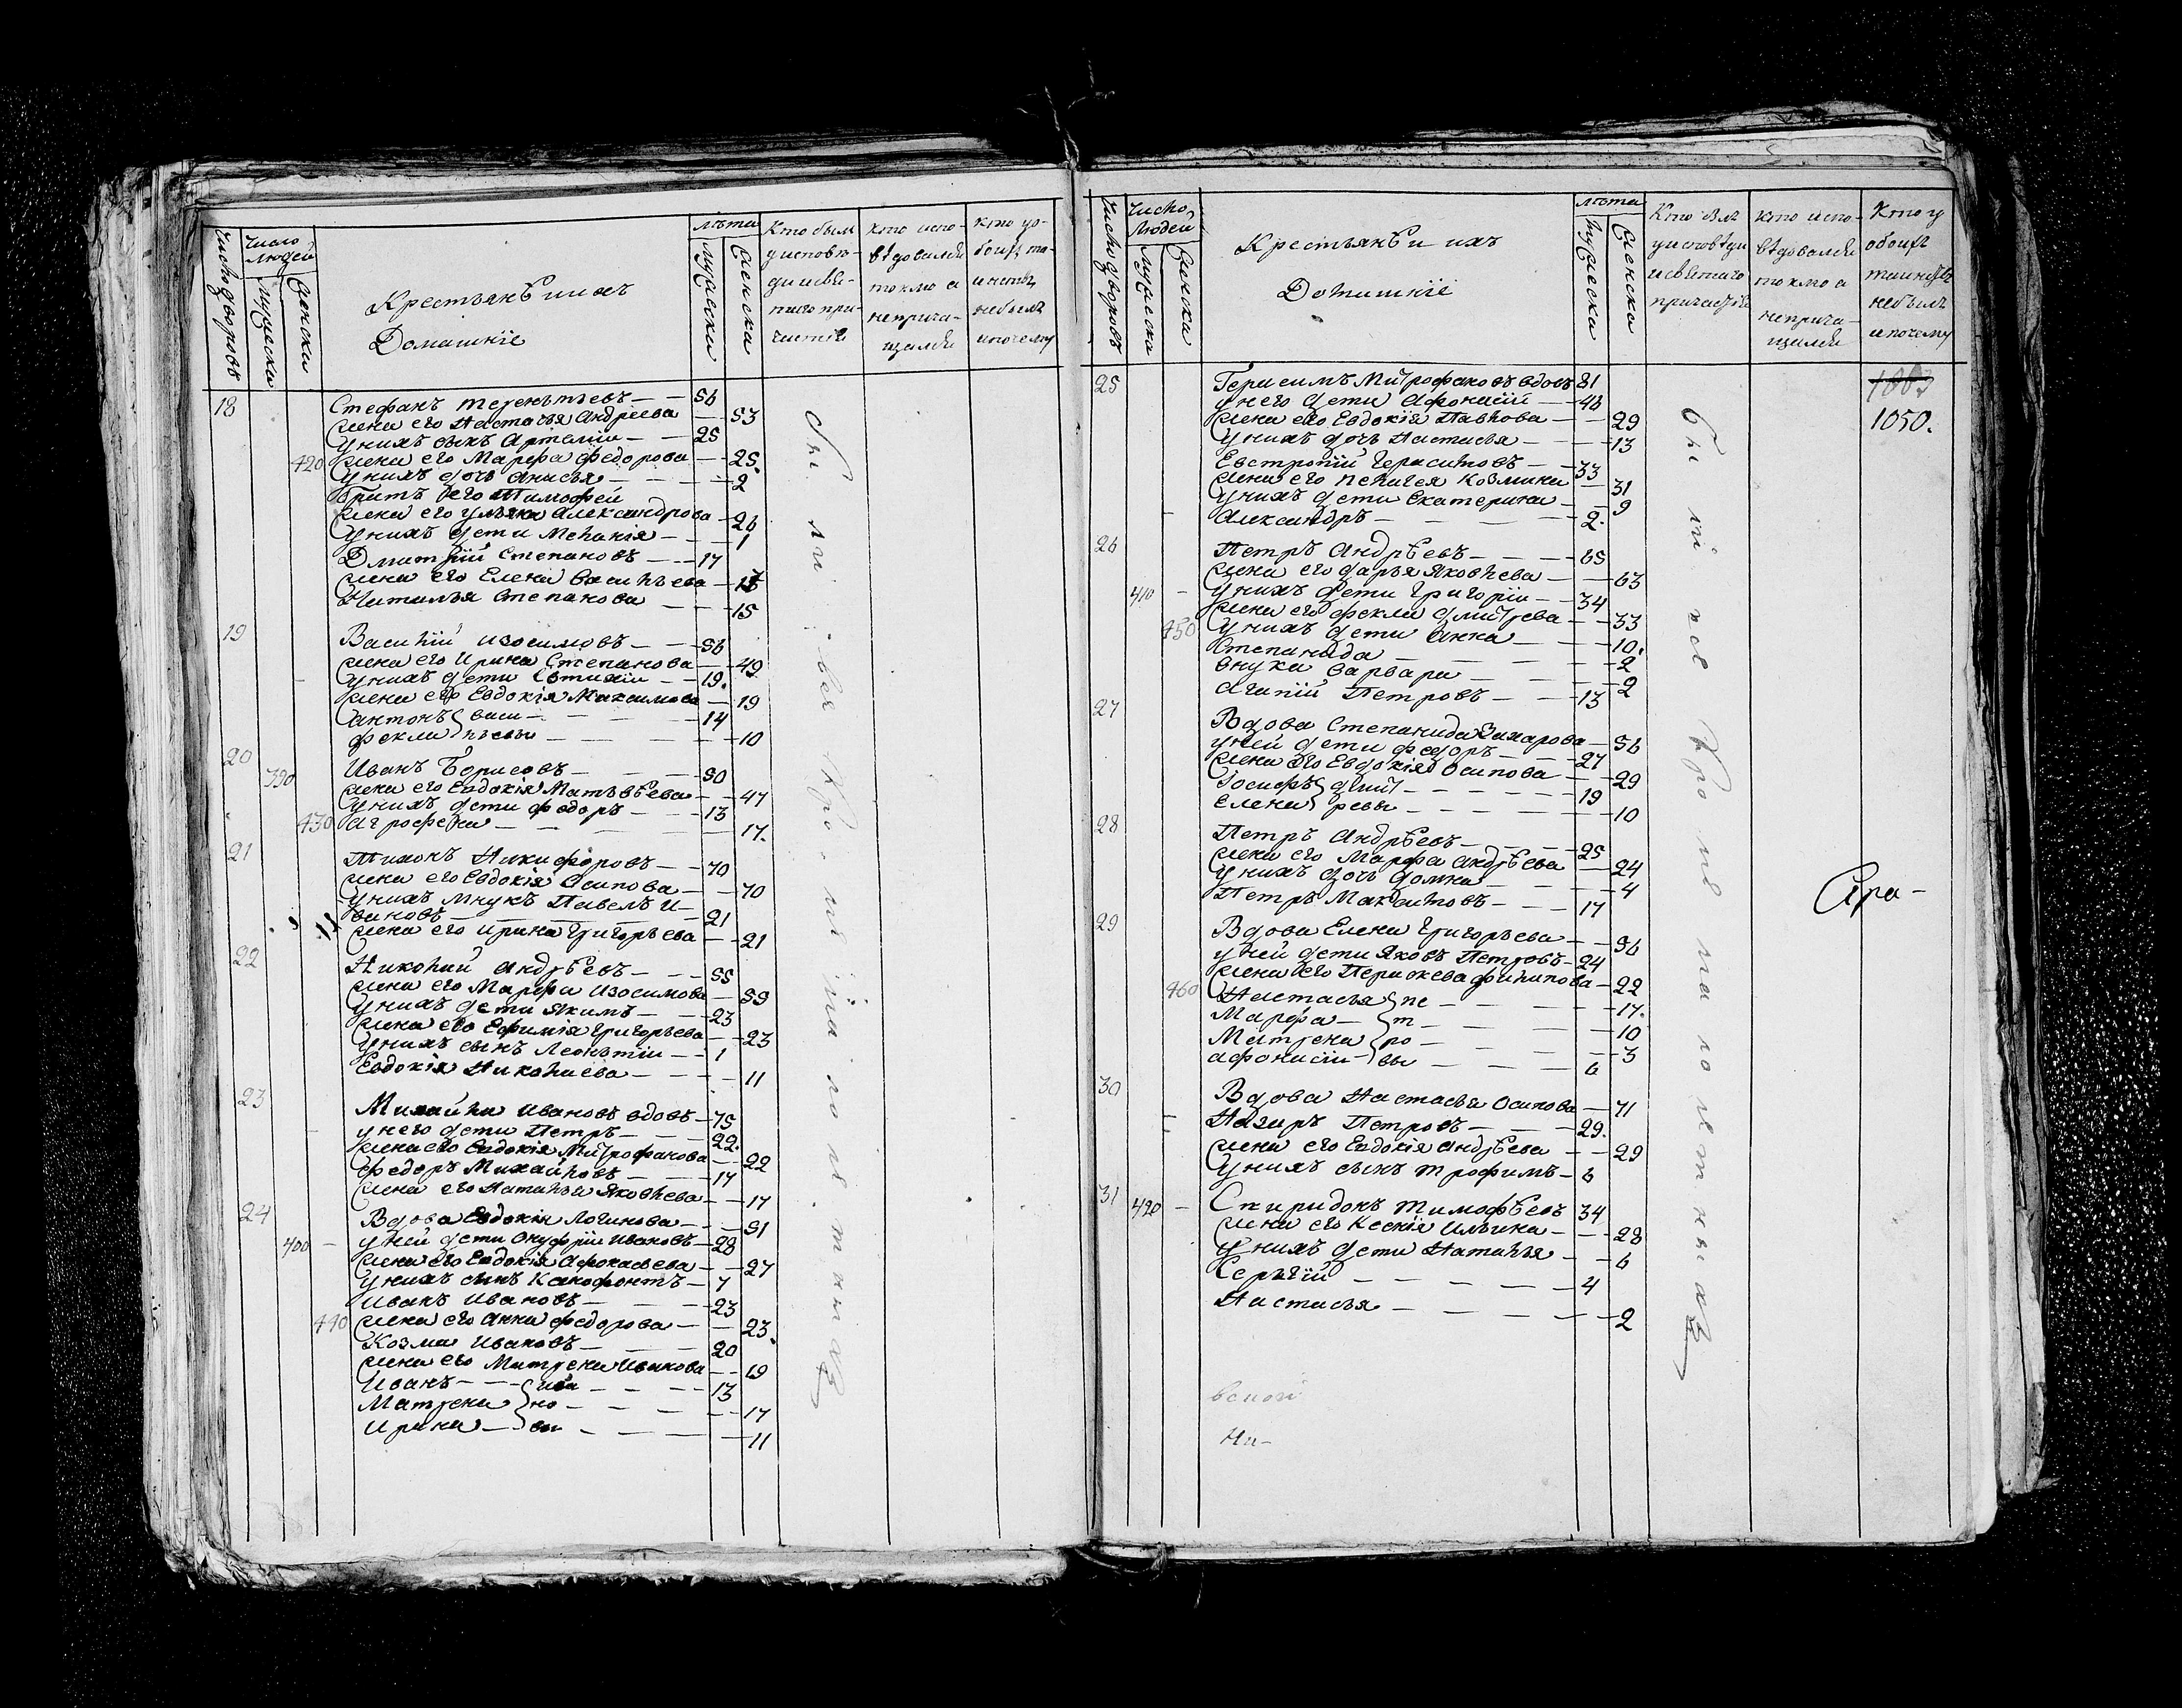 Число дворовъ
Число людей
Мужеска
Женска
Крестьянѣ и ихъ
Домашніе
лѣта
Мужеска
Женска
Кто былъ
у исповѣ-
ди и свя-
таго при-
частія
кто испо-
вѣдовался
токмо а
неприча-
щался
кто у о-
боихъ та-
инствъ
небылъ
и почему
18
Стефанъ Терентьевъ — 56
жена его Настасья Андреева — 53
у нихъ сынъ Артемии — 25
420 жена его Марфа Федорова — 25
у нихъ дочь Анисья — 2
братъ его Тимофей
жена его Ульяна Александрова — 26
у нихъ дети Меланія — 1
Дмитрій Степановъ — 17
жена его Елена Васильева — 18
Наталья Степанова — 15
19
Василій Изосимовъ — 56
жена его Ирина Степанова — 49
у нихъ дети Евтихіи — 19
жена его Евдокія Максимова — 19
Антонъ } васи — 14
Фекла } льевы — 10
20
390 Иванъ Борисовъ — 50
жена его Евдокія Матвѣева — 47
у нихъ дети Федоръ — 13
430 Аграфена — 17
21
Тихонъ Никифоровъ — 70
жена его Евдокія Осипова — 70
у нихъ внукъ Павелъ И-
вановъ — 21
жена его Ирина Григорьева — 21
22
Николай Андрѣевъ — 55
жена его Марфа Изосимова — 59
у нихъ дети Якимъ — 23
жена его Ефимія Григорьева — 23
у нихъ сынъ Леонтіи — 1
Евдокія Николаева — 11
23
Михайла Ивановъ вдовъ — 75
у него дети Петръ — 22
жена его Евдокія Митрофанова — 22
Федоръ Михайловъ — 17
жена его Наталья Яковлева — 17
24
Вдова Евдокія Логинова — 51
400 у ней дети Онуфріи Ивановъ — 28
жена его Евдокія Афонасьева — 27
у нихъ сынъ Ксенофонтъ — 7
Иванъ Ивановъ — 23
440 жена его Анна Федорова — 23
Козма Ивановъ — 20
жена его Матрена Иванова — 19
Иванъ } ива — 13
Матрена } но — 17
Ирина } вы — 11
Число дворовъ
Число людей
Мужеска
Женска
Крестьянѣ и ихъ
Домашніе
лѣта
Мужеска
Женска
Кто былъ
у исповѣди
и святаго
причастія
кто испо-
вѣдовался
токмо а
неприча-
щался
Кто у
обоихъ
таинствъ
небылъ
и почему
1050.
25
Герасимъ Митрофановъ вдовъ 81
у него дети Афонасій — 48
жена его Евдокія Павлова — 29
у нихъ дочь Настасья — 13
Евстропій Герасимовъ — 33
жена его Пелагея Козмина — 31
у нихъ дети Екатерина — 9
Александръ — 2
26
Петръ Андрѣевъ — 65
жена его Дарья Яковлева — 63
410 у нихъ дети Григоріи — 34
жена его Фекла Дмитрева — 33
450 у нихъ дети Анна — 10
Степанида — 2
внука Варвара — 2
Агапій Петровъ — 13
27
Вдова Степанида Захарова — 56
у ней дети Федоръ — 27
жена его Евдокія Осипова — 29
Іосифъ } дмит — 19
Елена } ревы — 10
28
Петръ Андрѣевъ — 25
жена его Марфа Андрѣева — 24
у нихъ дочь Домна — 4
Петръ Максимовъ — 17
29
Вдова Елена Григорьева — 56
у ней дети Яковъ Петровъ — 24
жена его Парасковеа Филипова — 22
460 Настасья } пе — 17
Марфа } т — 10
Матрена } ро — 3
Афонасіи } вы — 6
30
Вдова Настасья Осипова — 71
Назаръ Петровъ — 29
жена его Евдокія Андрѣева — 29
у нихъ сынъ Трофимъ — 6
31
420 Спиридонъ Тимофѣевъ 34
жена его Ксенія Ильина — 28
у нихъ дети Наталья — 6
Сергій — 4
Настасья — 2